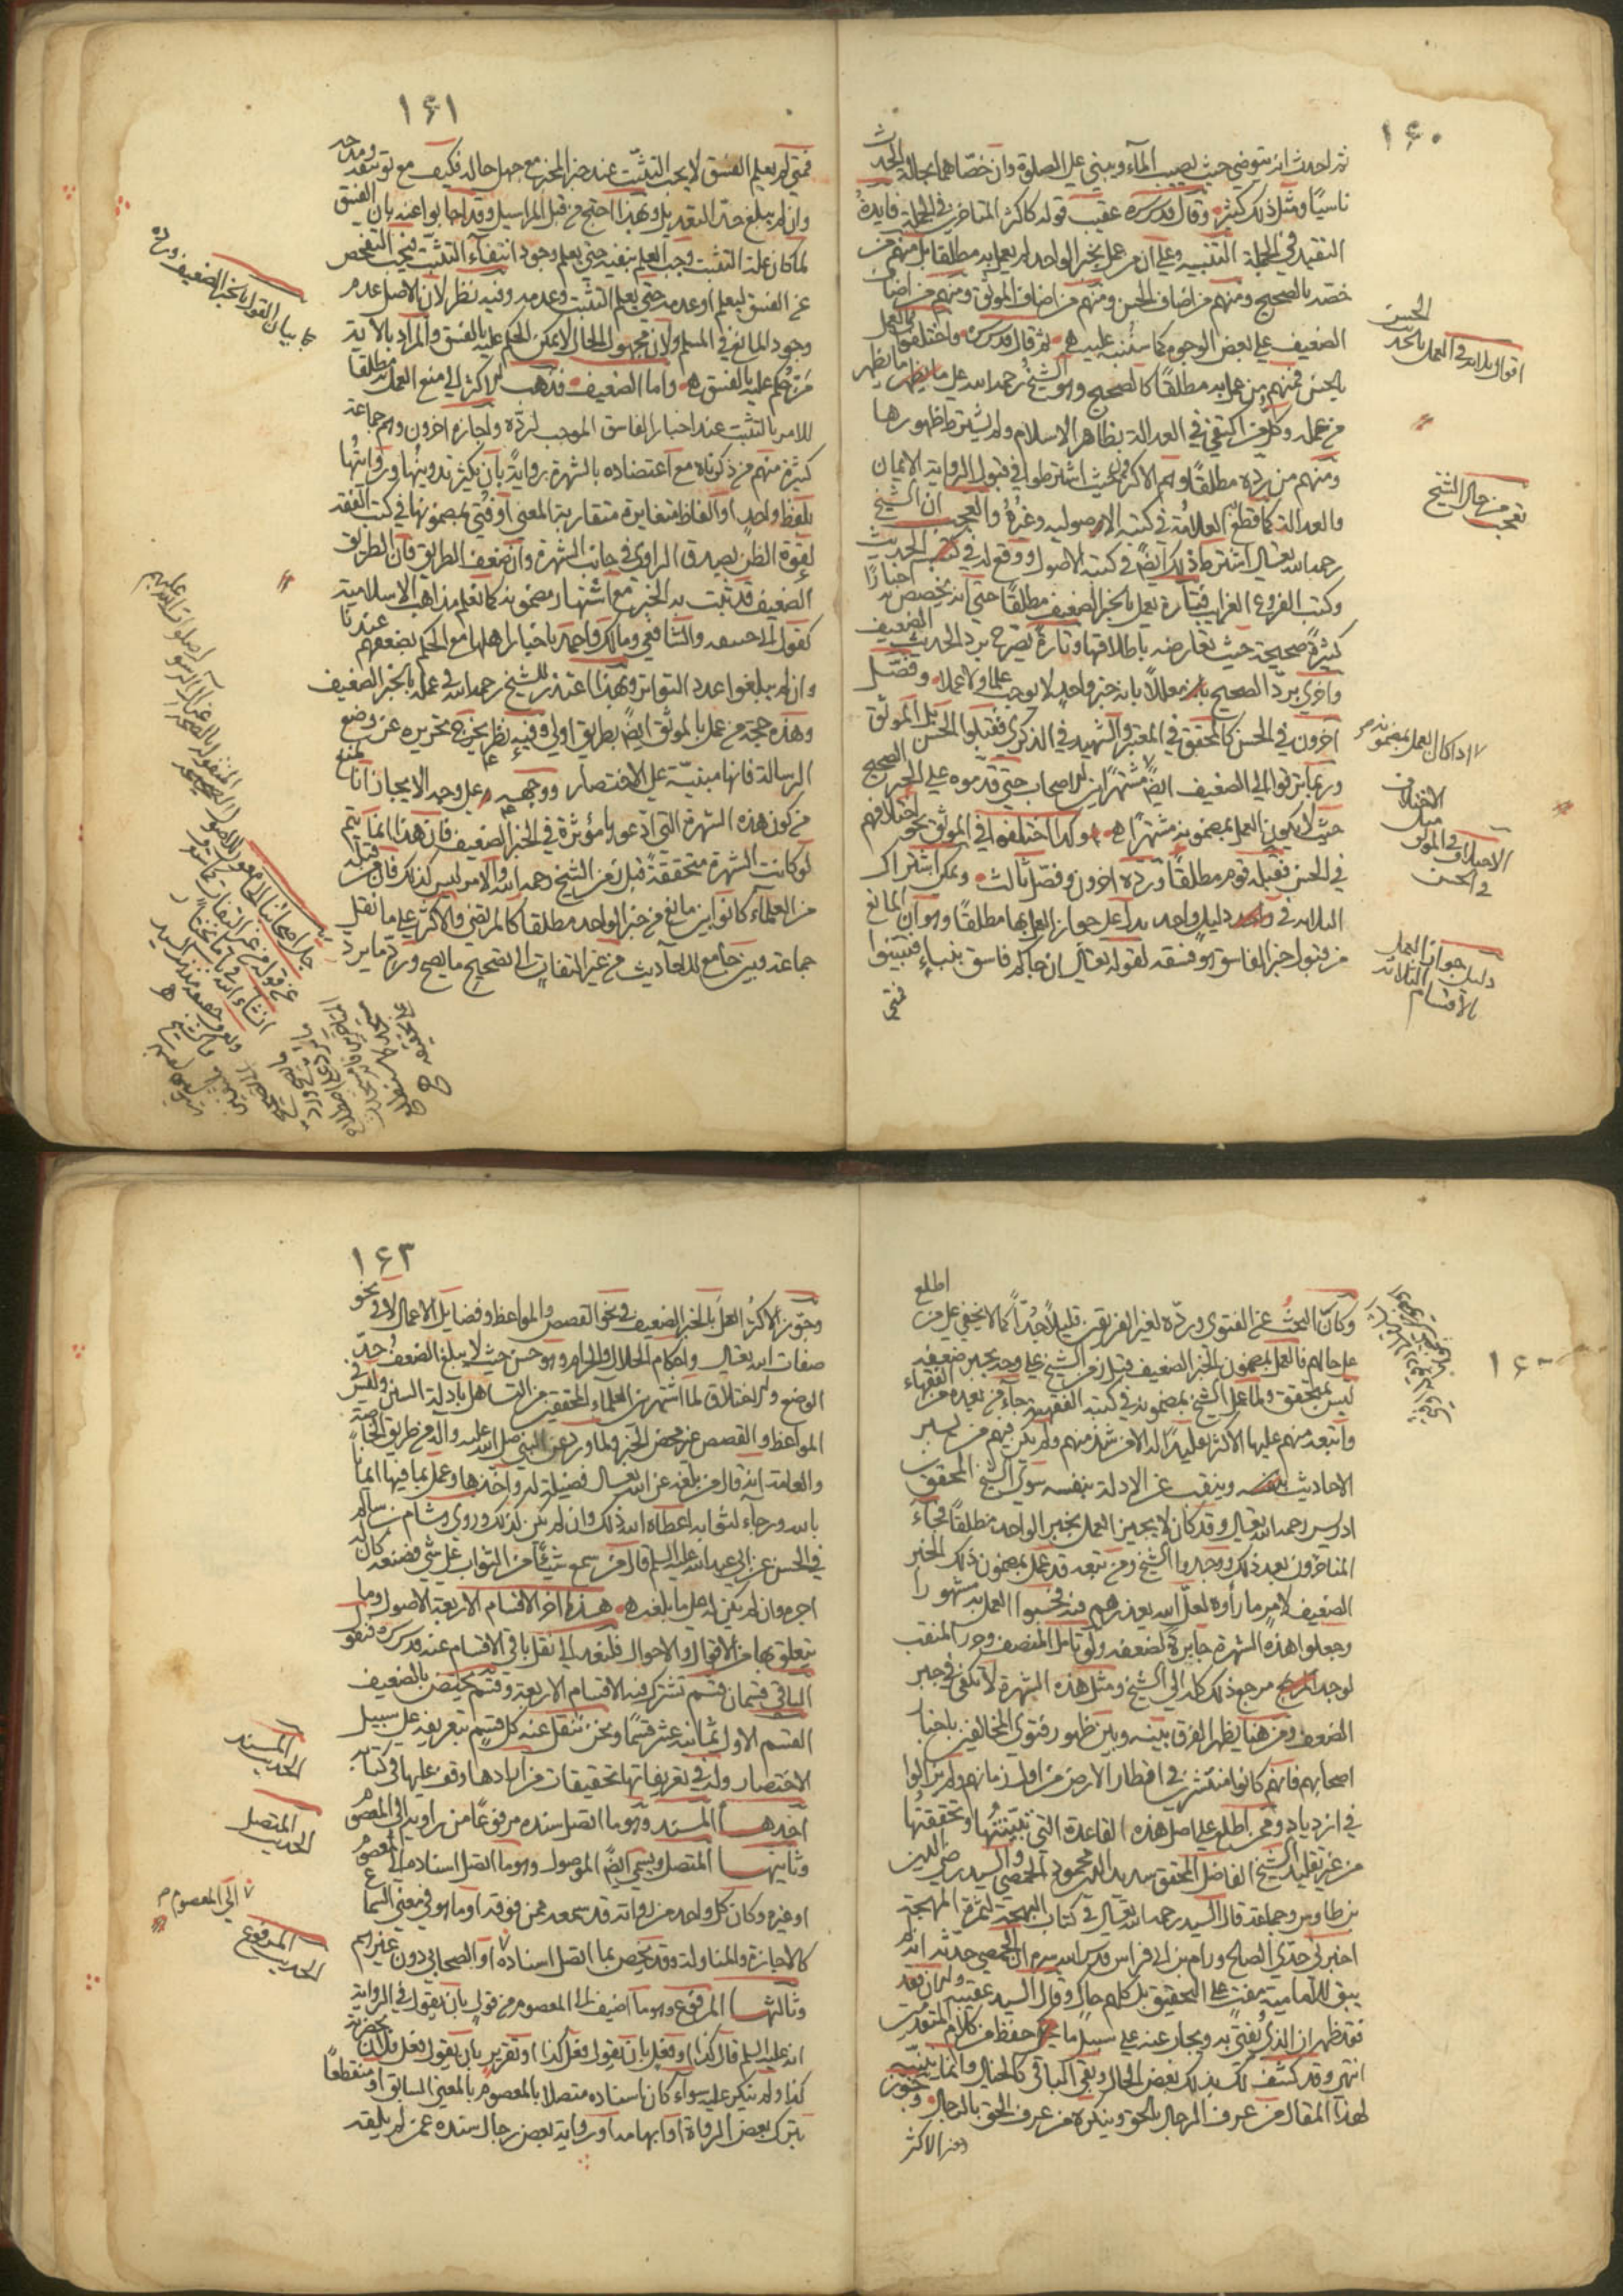 ١۶٠
ثم احدث انه يتوضى حيث يصيب المآء ويبني على الصلوة وان خصاهما بحالة الحدث
ناسيًا ومثل ذلك كثيرٌ وقال قدس سره عقيب قوله كاكثر المتاخرين في الجملة فايدةُ
التقييد في الجملة التنبيه على ان من عمل بخبر الواحد لم يعمل به مطلقا بل منهم من
خصّه بالصحيح ومنهم من اضاف الحسن ومنهم من اضاف الموثق ومنهم من اضاف
الضعيف على بعض الوجوه كما سننبه عليه ثم قال قدس سره واختلفوا في العمل
بالحسن فمنهم من عمل به مطلقًا كالصحيح وهو الشيخ رحمه الله على ما يظهر
من عمله وكل من اكتفى في العدالة بظاهر الاسلام ولم يشترط ظهورها
ومنهم من ردّه مطلقًا وهم الاكثرون حيث اشترطوا في قبول الرواية الايمان
والعدالة كما قطع العلامة في كتبه الاصوليه وغيرُهُ والعجب ان الشيخ
رحمه الله تعالى اشترط ذلك ايضًا في كتبه الاصول ووقع له في كتب الحديث
وكتب الفروع الغرايب فتارة يعمل بالخبر الضعيف مطلقًا حتى انه يخصص به اخبارًا
كثيرة صحيحة حيث تعارضه باطلاقها وتارةً يصرح برد الحديث الضعيف
واخرى بردّ الصحيح معللًا بانه خبر واحد لا يوجب علما ولا عملا وفصّل
آخرون في الحسن كالمحقق في المعتبر والشهيد في الذكرى فقبلوا الحسن بل الموثق
وربما ترقوا الى الضعيف ايضًا مشتهرًا بين الاصحاب حتى قدّموه على الخبر الصحيح
حيث لا يكون العمل بمضمونه مشتهرًا وكذا اختلفوا في الموثق نحو اختلافهم
في الحسن فقبله قوم مطلقًا وردّه اخرون وفصّل ثالث ويمكن اشتراك
الثلاثة في دليل واحد يدل على جواز العمل بها مطلقًا وهو ان المانع
من قبول خبر الفاسق هو فسقه لقوله تعالى ان جاءكم فاسق بنباءٍ فتبينوا
فمتى
اقوال ثلاثة في العمل بالحديث الحسن
تعجب من حال الشيخ
اذا كان العمل بمضمونه
الاختلاف في الموثق مثل الاختلاف في الحسن
دليل جواز العمل بالاقسام الثلاثة
١۶١
فمتى لم يعلم الفسق لا يجب التثبّت عند خبر المخبر مع جهل حاله فكيف مع توثيقه ومدحه
وان لم يبلغ حدّ التعديل وبهذا احتج من قبل المراسيل وقد اجابوا عنه بان الفسق
لما كان علة التثبت وجب العلم بنفيه حتى يعلم وجود انتفآء التثبّت فيجب التفحص
عن الفسق ليعلم او عدمه حتى يعلم التثبت وعدمه وفيه نظر لان الاصل عدم
وجود المانع في المسلم ولان مجهول الحال لا يمكن الحكم عليه بالفسق والمراد بالآية
من حُكم عليه بالفسق واما الضعيف فذهب الاكثر الى منع العمل به مطلقا
للامر بالتثبت عند اخبار الفاسق الموجب لردّه واجازه آخرون وهم جماعة
كثيرة منهم من ذكرناه مع اعتضاده بالشهرة روايةً بان يكثر تدوينها وروايتُها
بلفظ واحد او الفاظ متغايرة متقاربة المعنى او فتوى بمضمونها في كتب الفقه
لقوة الظن بصدق الراوي في جانب الشهرة وان ضعف الطريق فان الطريق
الضعيف قد يثبت به الخبر مع اشتهار مضمونه كما تعلم مذاهب الاسلامية
كقول ابي حنيفه والشافعي ومالك واحمد باخبار اهلها مع الحكم بضعفهم عندنا
وان لم يبلغوا عدد التواتر وبهذا اعتذر للشيخ رحمه الله في عمله بالخبر الضعيف
وهذه حجة من عمل بالموثق ايضًا بطريق اولى وفيه نظر يخرج تحريره عن وضع
الرسالة فانها مبنيّة على الاختصار ووجهه على وجه الايجاز انا نمنع
من كون هذه الشهرة التي ادّعوها مؤثرة في الخبر الضعيف فان هذا انما يتم
لو كانت الشهرة متحققة قبل زمن الشيخ رحمه الله والامر ليس كذلك فان من قبله
من العلمآء كانوا بين مانع من خبر الواحد مطلقا كالمرتضى والاكثر على ما نقل
جماعة وبين جامع للاحاديث من غير التفات الى تصحيح ما يصح وردّ ما يرد
بيان القول بالخبر الضعيف ورده
وكان البحثُ عن الفتوى وردّه لغير الفريقين قليلًا جُدّاً كما لا يخفى على من اطلع
على حالهم فالعمل بمضمون الخبر الضعيف قبل زمن الشيخ على وجه يجبر ضعفه
ليس بمتحقق ولما عمل الشيخ بمضمونه في كتبه الفقهية جآء من بعده من الفقهاء
واتبعه منهم عليها الاكثر تقليدًا له الا من شذ منهم ولم يكن فيهم من يسبر
الاحاديث وينقب عن الادلة بنفسه سوى الشيخ المحقق ابن
ادريس رحمه الله تعالى وقد كان لا يجيز العمل بخبر الواحد مطلقًا فجآء
المتاخرون بعد ذلك ووجدوا الشيخ ومن تبعه قد عمل بمضمون ذلك الخبر
الضعيف لامر ما رأوه لعلّ الله يعذرهم فيه فحسبوا العمل به مشهورا
وجعلوا هذه الشهرة جابرة لضعفه ولو تامل المنصف وحرر المنقب
لوجد مرجع ذلك كله الى الشيخ ومثل هذه الشهرة لا تكفى في جبر
الضعف ومن هنا يظهر الفرق بينه وبين ظهور فتوى المخالفين باخبار
اصحابهم فانهم كانوا منتشرين في اقطار الارض من اول زمانهم ولم يزالوا
في ازدياد وممن اطلع على اصل هذه القاعدة التي تبيّنتُها وتحققتها
من غير تقليد الشيخ الفاضل المحقق سديد الدين محمود الحمصي والسيد رضي الدين
بن طاوس وجماعة قال السيد رحمه الله تعالى في كتاب البهجة لثمرة المهجة
اخبرني جدّي الصالح ورام بن ابي فراس قدس الله سره ان الحمصي حدّثه انه لم
يبق للامامية مفت على التحقيق بل كلهم حاك وقال السيد عقيبه
فقد ظهر ان الذي يُفتى به ويجاب عنه على سبيل ما حفظ من كلام المتقدمين
انتهى وقد كشفت لك بذلك بعض الحال وبقي الباقي كالخيال وانما يتنبّه
لهذا المقال من عرف الرجال بالحق وينكره من عرف الحق بالرجال وجوّز
الاكثر
١۶٣
وجوّز الاكثرُ العملَ بالخبر الضعيف في نحو القصص والمواعظ وفضايل الاعمال لا في نحو
صفات الله تعالى واحكام الحلال والحرام وهو حسن حيث لا يبلغ الضعف حدّ
الوضع والاختلاق لما اشتهر بين العلمآء المحققين من التساهل بادلة السنن وليس في
المواعظ والقصص غير محض الخبر ولما ورد عن النبي صلى الله عليه وآله من طريق الخاصة
والعامة انه قال من بلغه عن الله تعالى فضيلة له واخذها وعمل بما فيها ايمانًا
بالله ورجآء لثوابه اعطاه الله ذلك وان لم يكن كذلك وروى هشام بن سالم
في الحسن عن ابي عبد الله عليه السلم قال من سمع شيئًا من الثواب على شي فصنعه كان له
اجره وان لم يكن له على ما بلغه هذه آخر الاقسام الاربعة الاصول وما
يتعلق بها من الاقوال والاحوال فلنعد الى نقل باقي الاقسام عنه قدس سره فنقول
الباقي قسمان قسم تشترك فيه الاقسام الاربعة وقسم يختص بالضعيف
القسم الاول ثمانية عشر قسمًا ونحن ننقل عنه كل قسم بتعريفه على سبيل
الاختصار وله في تعريفاتها تحقيقات من ارادها وقف عليها في كتابه
احدها المسند وهو ما اتصل سنده مرفوعًا من راويه الى المعصوم
وثانيها المتصل ويسمى ايضًا الموصول وهو ما اتصل اسناده الى المعصوم ع
او غيره وكان كل واحد من رواته قد سمعه ممن فوقه او ما هو في معنى السماع
كالاجازة والمناولة وقد يخص بما اتصل اسناده او الصحابي دون غيرهم
وثالثها المرفوع وهو ما اضيف الى المعصوم من قول بان يقول في الرواية
انه عليه السلم قال كذا او فعل بان يقول فعل كذا او تقرير بان يقول فعل فلان بحضرته
كذا ولم ينكر عليه سوآء كان اسناده متصلا بالمعصوم بالمعنى السابق او منقطعًا
بترك بعض الرواة او ابهامه او رواية بعض رجال سنده عمن لم يلقه
الحديث المسند
الحديث المتصل
الى المعصوم
الحديث المرفوع